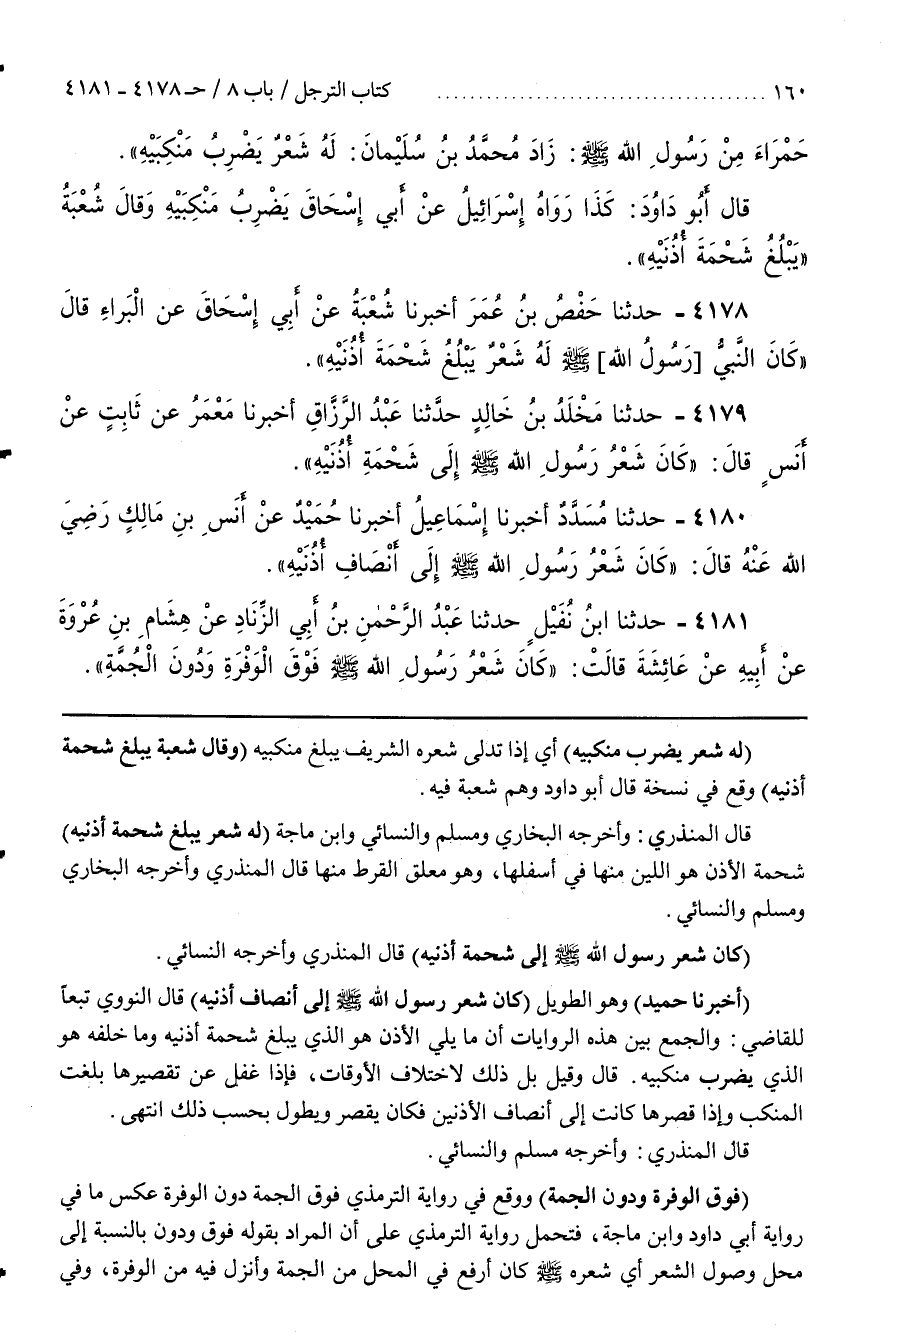 ١٦٠ ........................................ كتاب الترجل / باب ٨ / حـ ٤١٧٨ - ٤١٨١
حَمْرَاءَ مِنْ رَسُولِ الله ﷺ: زَادَ مُحمَّدُ بنُ سُلَيْمانَ: لَهُ شَعْرٌ يَضْرِبُ مَنْكِبَيْهِ».
قال أَبُو دَاوُدَ: كَذَا رَوَاهُ إسْرَائِيلُ عنْ أبي إسْحَاقَ يَضْرِبُ مَنْكِبَيْهِ وَقالَ شُعْبَةُ
«يَبْلُغُ شَحْمَةَ أُذُنَيْهِ».
٤١٧٨ - حدثنا حَفْصُ بنُ عُمَرَ أخبرنا شُعْبَةُ عنْ أَبِي إسْحَاقَ عن الْبَراءِ قالَ
«كَانَ النَّبيُّ [رَسُولُ الله] ﷺ لَهُ شَعْرٌ يَبْلُغُ شَحْمَةَ أُذُنَيْهِ».
٤١٧٩ - حدثنا مَخْلَدُ بنُ خَالِدٍ حدَّثنا عَبْدُ الرَّزَّاقِ أخبرنا مَعْمَرُ عن ثَابِتٍ عنْ
أَنَسٍ قالَ: «كَانَ شَعْرُ رَسُولِ الله ﷺ إلَى شَحْمَةِ أُذُنَيْهِ».
٤١٨٠ - حدثنا مُسَدَّدٌ أخبرنا إسْمَاعِيلُ أخبرنا حُمَيْدٌ عنْ أَنَسِ بنِ مَالِكٍ رَضِيَ
الله عَنْهُ قالَ: «كَانَ شَعْرُ رَسُولِ الله ﷺ إلَى أَنْصَافِ أُذُنَيْهِ».
٤١٨١ - حدثنا ابنُ نُفَيْلٍ حدثنا عَبْدُ الرَّحْمٰنِ بنُ أَبي الزِّنَادِ عنْ هِشَامِ بنِ عُرْوَةَ
عنْ أَبِيهِ عنْ عَائِشَةَ قالَتْ: «كَانَ شَعْرُ رَسُولِ الله ﷺ فَوْقَ الْوَفْرَةِ وَدُونَ الْجُمَّةِ».
(له شعر يضرب منكبيه) أي إذا تدلى شعره الشريف يبلغ منكبيه (وقال شعبة يبلغ شحمة
أذنيه) وقع في نسخة قال أبو داود وهم شعبة فيه.
قال المنذري: وأخرجه البخاري ومسلم والنسائي وابن ماجة (له شعر يبلغ شحمة أذنيه)
شحمة الأذن هو اللين منها في أسفلها، وهو معلق القرط منها قال المنذري وأخرجه البخاري
ومسلم والنسائي.
(كان شعر رسول الله ﷺ إلى شحمة أذنيه) قال المنذري وأخرجه النسائي.
(أخبرنا حميد) وهو الطويل (كان شعر رسول الله ﷺ إلى أنصاف أذنيه) قال النووي تبعاً
للقاضي: والجمع بين هذه الروايات أن ما يلي الأذن هو الذي يبلغ شحمة أذنيه وما خلفه هو
الذي يضرب منكبيه. قال وقيل بل ذلك لاختلاف الأوقات، فإذا غفل عن تقصيرها بلغت
المنكب وإذا قصرها كانت إلى أنصاف الأذنين فكان يقصر ويطول بحسب ذلك انتهى.
قال المنذري: وأخرجه مسلم والنسائي.
(فوق الوفرة ودون الجمة) ووقع في رواية الترمذي فوق الجمة دون الوفرة عكس ما في
رواية أبي داود وابن ماجة، فتحمل رواية الترمذي على أن المراد بقوله فوق ودون بالنسبة إلى
محل وصول الشعر أي شعره ﷺ كان أرفع في المحل من الجمة وأنزل فيه من الوفرة، وفي